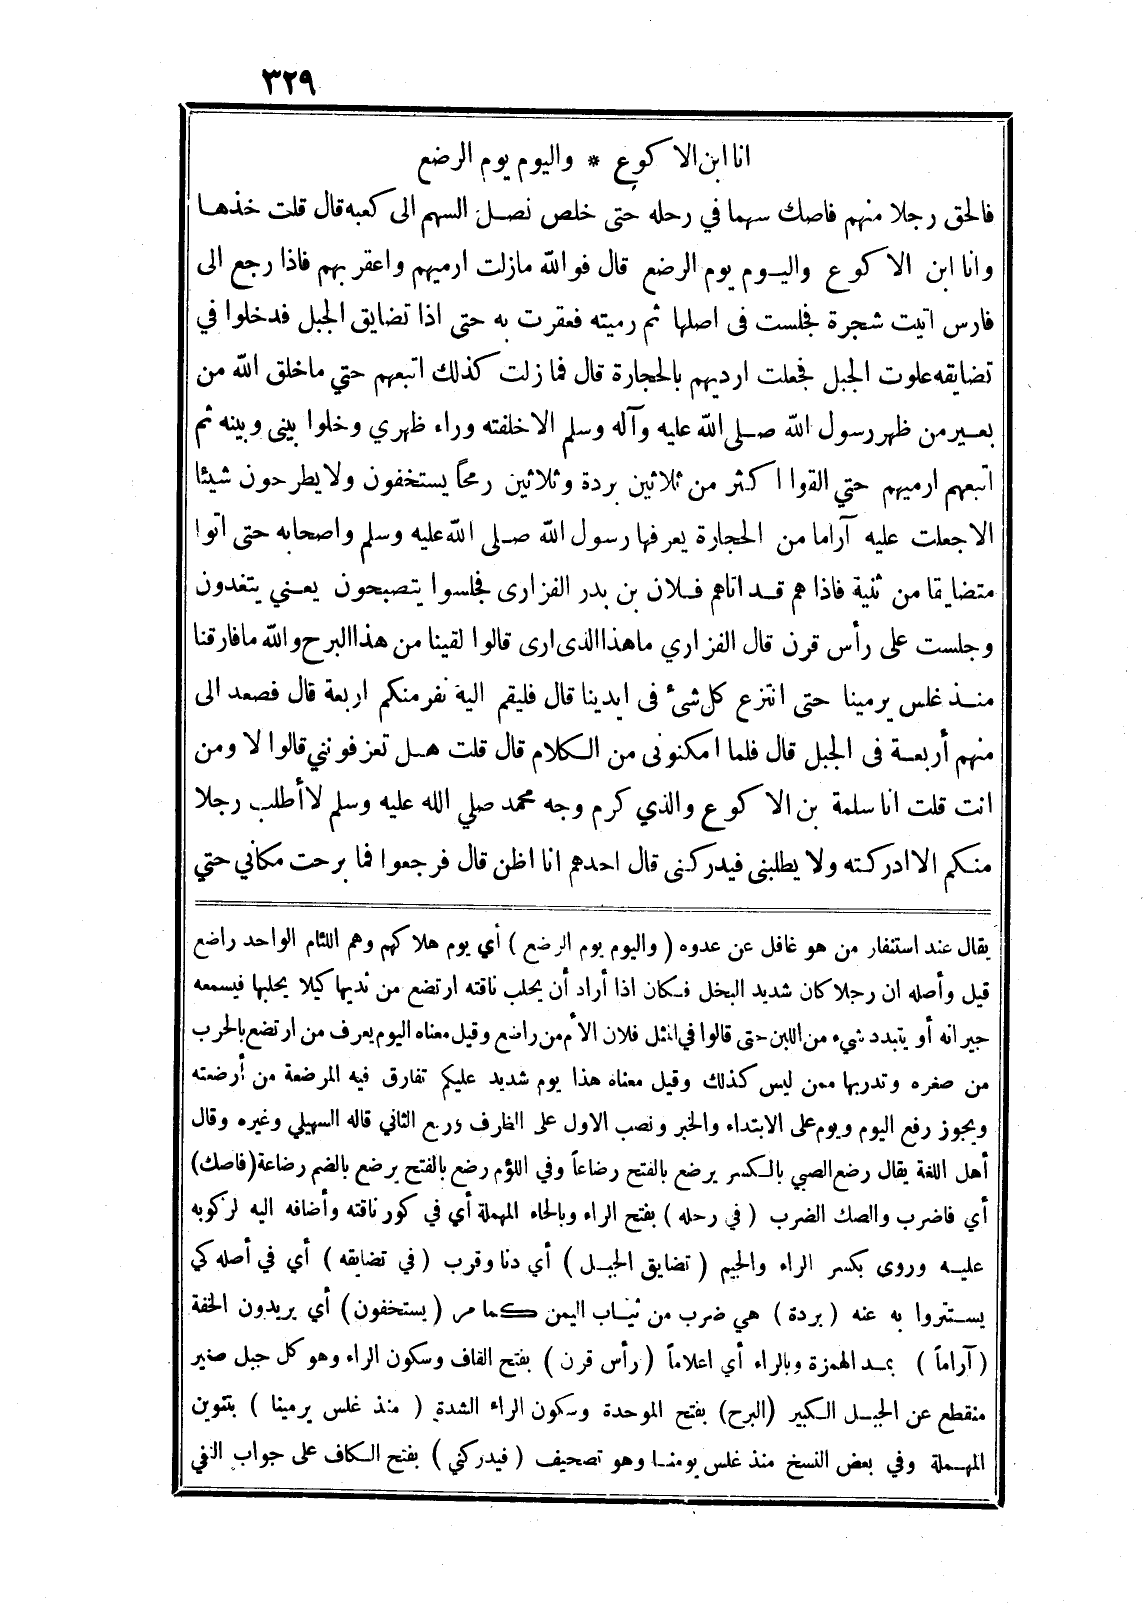 ٣٢٩
انا ابن الاكوع * واليوم يوم الرضع
فالحق رجلا منهم فاصك سهما في رحله حتى خلص نصل السهم الى كعبه قال قلت خذها
وانا ابن الاكوع واليوم يوم الرضع قال فوالله مازلت ارميهم واعقر بهم فاذا رجع الى
فارس اتيت شجرة فجلست فى اصلها ثم رميته فعقرت به حتى اذا تضايق الجبل فدخلوا في
تضايقه علوت الجبل فجعلت ارديهم بالحجارة قال فما زلت كذلك اتبعهم حتي ماخلق الله من
بعير من ظهر رسول الله صلى الله عليه وآله وسلم الا خلفته وراء ظهري وخلوا بينى وبينه ثم
اتبعهم ارميهم حتي القوا اكثر من ثلاثين بردة وثلاثين رمحاً يستخفون ولا يطرحون شيئا
الاجعلت عليه آراما من الحجارة يعرفها رسول الله صلى الله عليه وسلم واصحابه حتى اتوا
متضايقا من ثنية فاذا هم قد اتاهم فلان بن بدر الفزارى فجلسوا يتصبحون يعني يتغدون
وجلست على رأس قرن قال الفزاري ماهذا الذى ارى قالوا لقينا من هذا البرح والله مافارقنا
منذ غلس يرمينا حتى انتزع كل شئ فى ايدينا قال فليقم اليه نفر منكم اربعة قال فصعد الى
منهم أربعة فى الجبل قال فلما امكنونى من الكلام قال قلت هل تعرفونني قالوا لا ومن
انت قلت انا سلمة بن الاكوع والذي كرم وجه محمد صلي الله عليه وسلم لا أطلب رجلا
منكم الا ادركته ولا يطلبنى فيدركنى قال احدهم انا اظن قال فرجعوا فما برحت مكاني حتي
يقال عند استنفار من هو غافل عن عدوه (واليوم يوم الرضع) أي يوم هلاكهم وهم اللئام الواحد راضع
قيل وأصله ان رجلا كان شديد البخل فكان اذا أراد أن يحلب ناقته ارتضع من ثديها كيلا يحلبها فيسمعه
جيرانه أو يتبدد شيء من اللبن حتى قالوا في المثل فلان الأم من راضع وقيل معناه اليوم يعرف من ارتضع بالحرب
من صغره وتدربها ممن ليس كذلك وقيل معناه هذا يوم شديد عليكم تفارق فيه المرضعة من أرضعته
ويجوز رفع اليوم ويوم على الابتداء والخبر ونصب الاول على الظرف ورفع الثاني قاله السهيلي وغيره وقال
أهل اللغة يقال رضع الصبي بالكسر يرضع بالفتح رضاعاً وفي اللؤم رضع بالفتح يرضع بالضم رضاعة (فاصك)
أي فاضرب والصك الضرب (في رحله) بفتح الراء وبالحاء المهملة أي في كور ناقته وأضافه اليه لركوبه
عليه وروى بكسر الراء والجيم (تضايق الجبل) أي دنا وقرب (في تضايقه) أي في أصله كي
يستتروا به عنه (بردة) هي ضرب من ثياب اليمن كما مر (يستخفون) أي يريدون الخفة
(آراماً) بمد الهمزة وبالراء أي اعلاماً (رأس قرن) بفتح القاف وسكون الراء وهو كل جبل صغير
منقطع عن الجبل الكبير (البرح) بفتح الموحدة وسكون الراء الشدة (منذ غلس يرمينا) بتنوين
المهملة وفي بعض النسخ منذ غلس يومنا وهو تصحيف (فيدركني) بفتح الكاف على جواب النفي